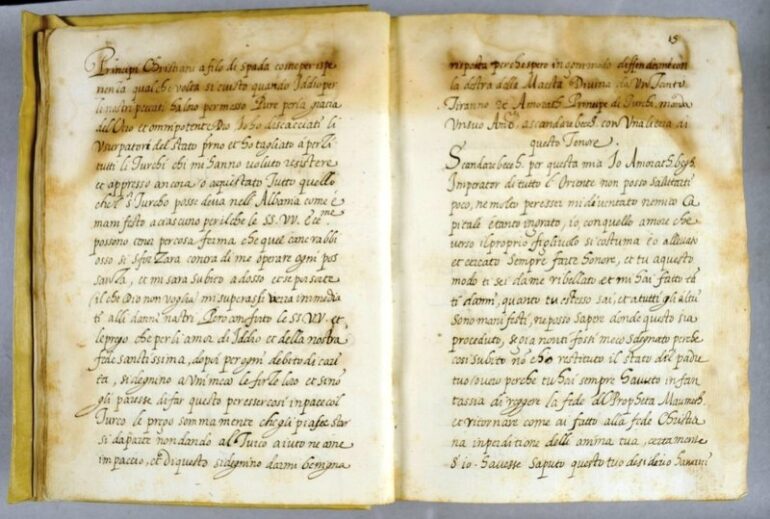 Principi Christiani a filo di spada come per ispe
rienza qualche volta si è visto quando Iddio per
li nostri peccati ha lor permesso Pure per la gracia
del vero et omnipotente Dio Io ho discacciati li
Usurpatori del stato et ho tagliato a pezzi
tutti li Turchi che mi hanno voluto resistere
et appresso ancora ò aquistato Tutto quello
che l Turcho possedeva nell'Albania come è
manifesto a ciascuno perilche le SS. VV.
possono tener per cosa ferma che quel cane rabbi
oso si sforzara contra di me operare ogni pos
sanza, et mi sara subito adosso et se passare
il che Dio non voglia mi superassi verra immedia
te alli danni nostri. Pero confuto le SS. VV. et
le prego che per li amor di Iddio et della nostra
fede santissima, dopoi per ogni debito di cari
ta, si degnino a Unir meco le forze loro et se non
gli paresse di far questo per esser così in pace col
Turco le prego sommamente che gli piaccia star
si da parte non dando al Turco aiuto ne a me
impaccio, et di questo si degnino darmi benigna
15
risposta perche spero in gommodo diffendermi con
la destra della Maesta Divina da Un Tanto
Tiranno Et Amorath Principe di Turchi manda
Un suo a Scandarbech con Una litera di
questo Tenore.
Scandarbech per questa mia Io Amorath begh
Imperator di tutto l'Oriente non posso Salutarti
poco, ne molto per essermi diventato nemico Ca
pitale è tanto ingrato, io con quello amore che
verso il proprio figliuolo si costuma è o allevato
et cercato Sempre farte honore, et tu aquesto
modo ti sei da me ribellato et mi hai fatto ta
ti danni, quanto tu estesso sai, et a tutti gli altri
sono manifesti, ne posso sapere donde questo sia
proceduto, se gia non ti fosti meco sdegnato perche
cosi subito no ho restituto il stato del padre
tuo overo perche tu hai sempre havuto in fan
tassia di reggere la fede del Propheta Maumeth
et ritornare come ai fatto alla fede Christia
na in perditione dell anima tua, certamente
s'io havesse saputo questo tuo desiderio